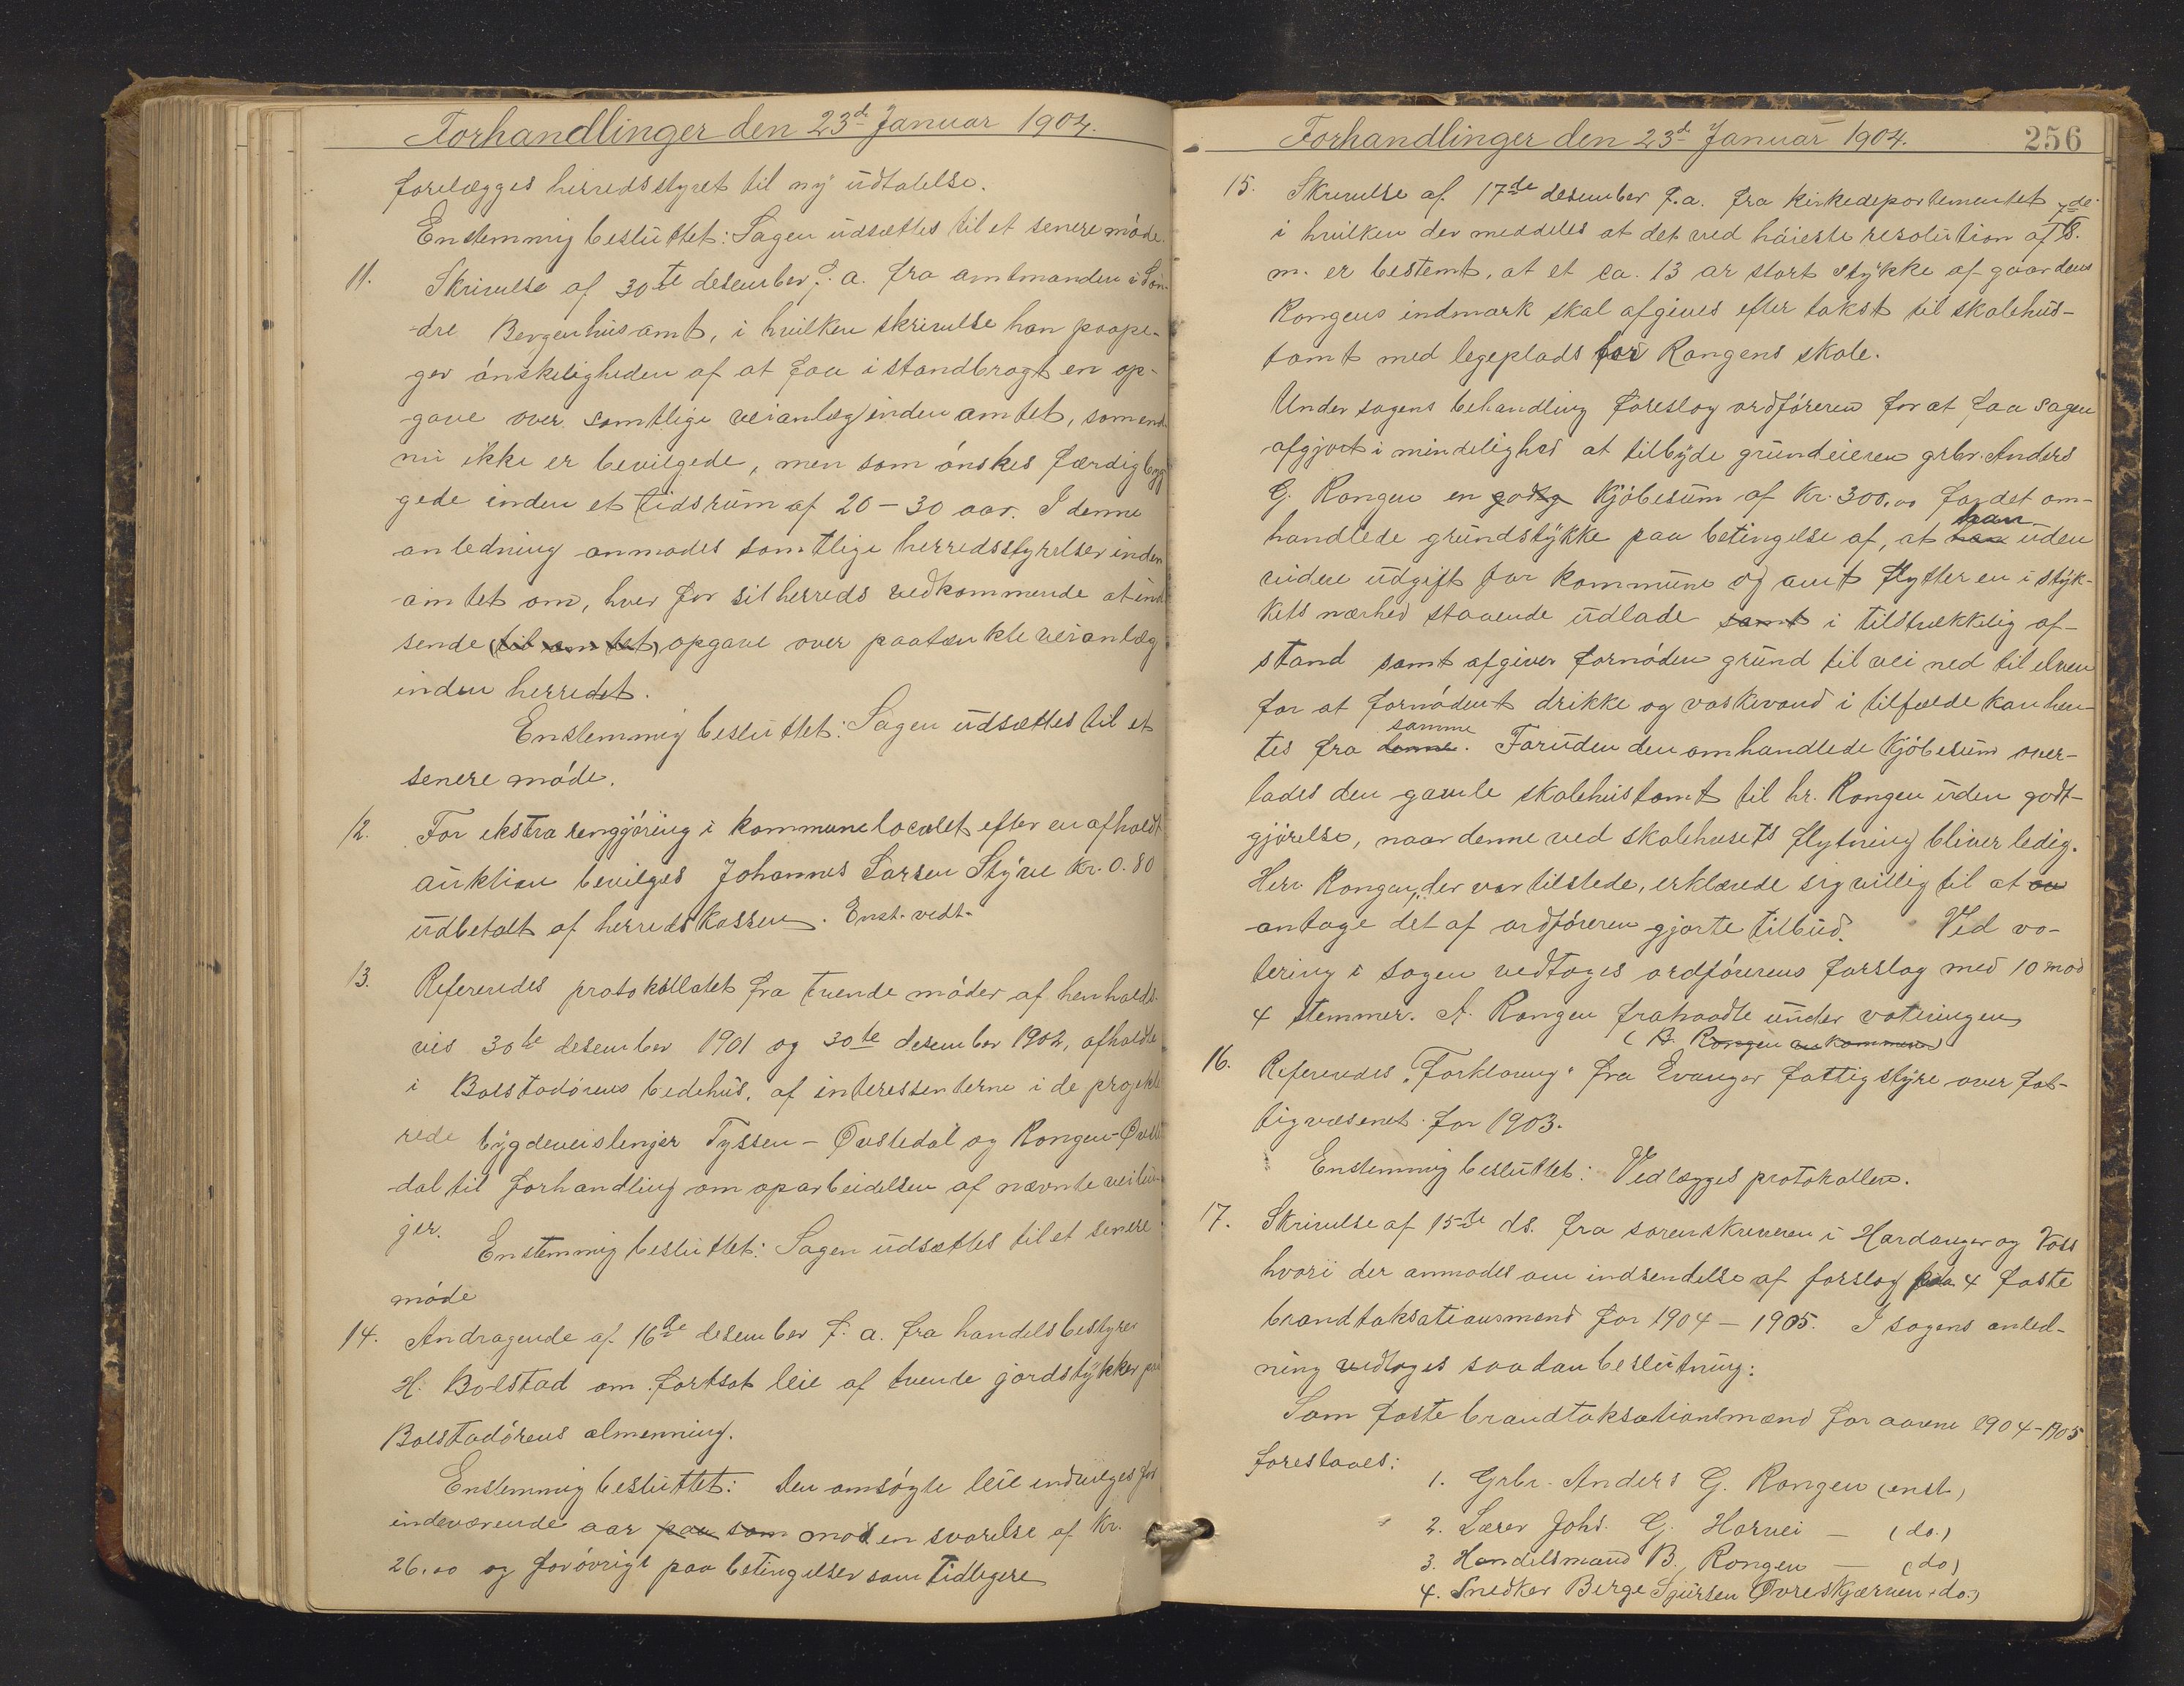 Forhandlinger den 23d Januar 1904.
forelægges herredsstyret til ny udtalelse.
Enstemmig besluttet: Sagen udsættes til et senere møde.
11. Skrivelse af 30te desember f. a. fra amtmanden i Søn-
dre Bergenhus amt, i hvilken skrivelse han paape-
ger ønskeligheden af at faa istandbragt en op-
gave over samtlige veianlæg inden amtet, som end-
nu ikke er bevilgede, men som ønskes færdigbyg-
gede inden et tidsrum af 20-30 aar. I denne
anledning anmodes samtlige herredsstyrelser inden
amtet om, hver for sit herreds vedkommende at ind-
sende (til amtet) opgave over paatænkte veianlæg
inden herredet.
Enstemmig besluttet: Sagen udsættes til et
senere møde.
12. For ekstra rengjøring i kommunelocalet efter en afholdt
auktion bevilges Johannes Larsen Styve Kr. 0.80
udbetalt af herredskassen. Enst. vedt.
13. Refereredes protokollatet fra tvende møder af henholds-
vis 30te desember 1901 og 30te desember 1902, afholdte
i Bolstadørens bedehus, af interessenterne i de projekte-
rede bygdeveislinjer Tyssen - Øvstedal og Rongen-Øvste
dal til forhandling om oparbeidelsen af nævnte veilin-
jer.
Enstemmig besluttet: Sagen udsættes til et senere
møde
14. Andragende af 16de desember f. a. fra handelsbestyrer
H. Bolstad om fortsat leie af tvende jordstykker paa
Bolstadørens almenning.
Enstemmig besluttet: Den omsøgte leie indvilges for
indeværende aar paa som mod en svarelse af Kr.
26.00 og forøvrigt paa betingelser som tidligere
Forhandlinger den 23d Januar 1904. 256
15. Skrivelse af 17de desember f.a. fra kirkedepartementet
i hvilken der meddeles at det ved høieste resolution af 7de s.
m. er bestemt, at et ca. 13 ar stort stykke af gaarden
Rongens indmark skal afgives efter takst til skolehus-
tomt med legeplads for Rongens skole.
Under sagens behandling foreslog ordføreren for at faa sagen
afgjort i mindelighed at tilbyde grundeieren grbr. Anders
G. Rongen en godtg Kjøbesum af Kr. 300.00 for det om-
handlede grundstykke paa betingelse af, at han han uden
videre udgift for kommune og amt flytter en i styk-
kets nærhed staaende udlade samt i tilstrækkelig af-
stand samt afgiver fornøden grund til vei ned til elven
for at fornødent drikke og vaskevand i tilfælde kan hen-
tes fra denne samme. Foruden den omhandlede Kjøbesum over-
lades den gamle skolehustomt til hr. Rongen uden godt-
gjørelse, naar denne ved skolehusets flytning bliver ledig.
Herr Rongen, der var tilstede, erklærede sig villig til at an
antage det af ordføreren gjorte tilbud. Ved vo-
tering i sagen vedtoges ordførerens forslag med 10 mod
4 stemmer. A. Rongen fratraadte under voteringen
(B. Rongen ankommen)
16. Refereredes "Forklaring" fra Evanger fattigstyre over fat-
tigvæsenet for 1903.
Enstemmig besluttet: Vedlægges protokollen.
17. Skrivelse af 15de ds. fra sorenskriveren i Hardanger og Voss
hvori der anmodes om indsendelse af forslag paa 4 faste
brandtaksationsmænd for 1904 - 1905. I sagens anled-
ning vedtoges saadan beslutning:
Som faste brandtaksationsmænd for aarene 1904-1905
foreslaaes:
1. Grbr. Anders G. Rongen (enst)
2. Lærer Johs. G. Horvei - (do.)
3. Handelsmand B. Rongen - (do)
4. Snedker Berge Sjursen Øvreskjærven (do.)